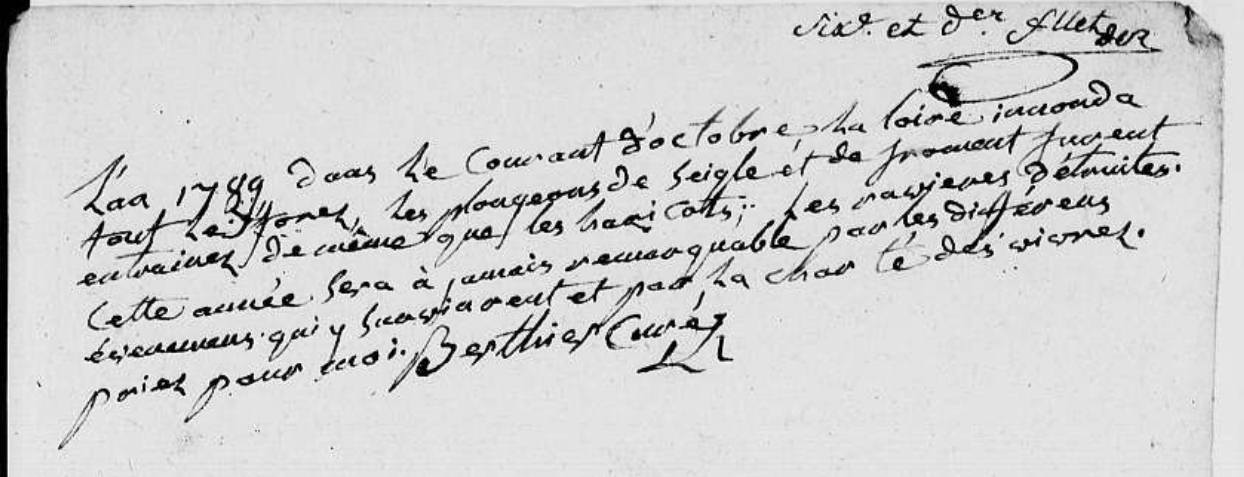 Six.e et d.er fllet
L'an 1789, dans Le Courant d'octobre, La loire innonda
tout Le forez, Les plongeons de seigle et de froment furent
entrainez, de même que les haricots; Les ravieres détruites.
Cette année sera à jamais remarquable par les différens
évenemens qui y survinrent et par La charté des vivres.
priez pour moi. Berthier Curé